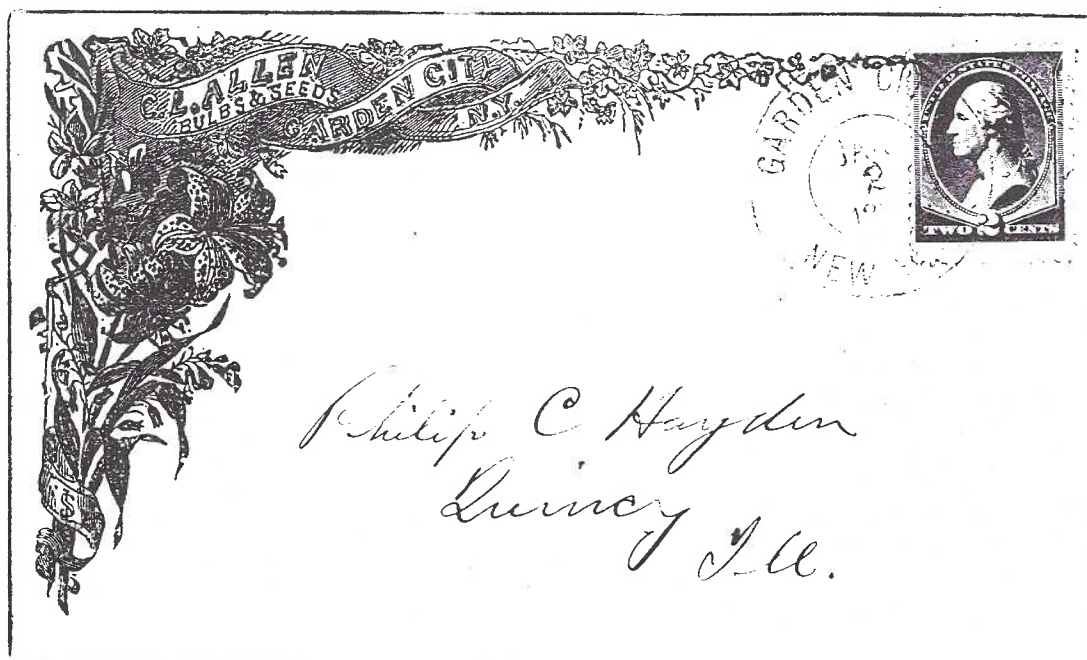 C.L. ALLEN
BULBS & SEEDS
GARDEN CITY
N.Y.
GARDEN
NEW
UNITED STATES POSTAGE
TWO 2 CENTS
Philip C Hayden
Quincy
Ill.